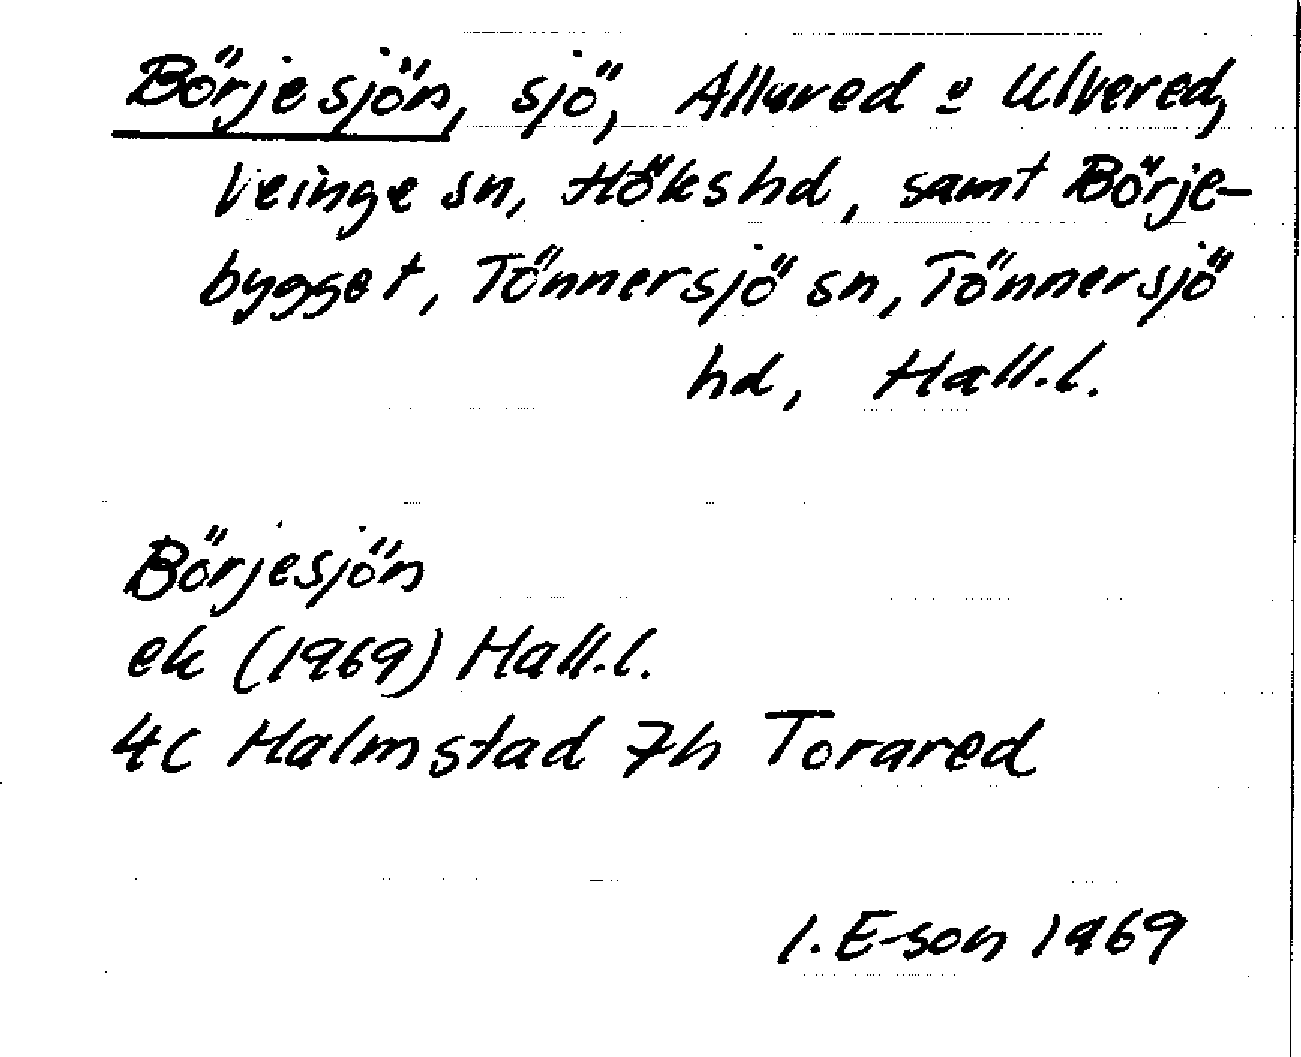 Börjesjön, sjö, Allared o Ulvered,
Veinge sn, Höks hd, samt Börje-
bygget, Tönnersjö sn, Tönnersjö
hd, Hall.l.
Börjesjön
ek (1969) Hall.l.
4C Halmstad 7h Torared
I. E-son 1969